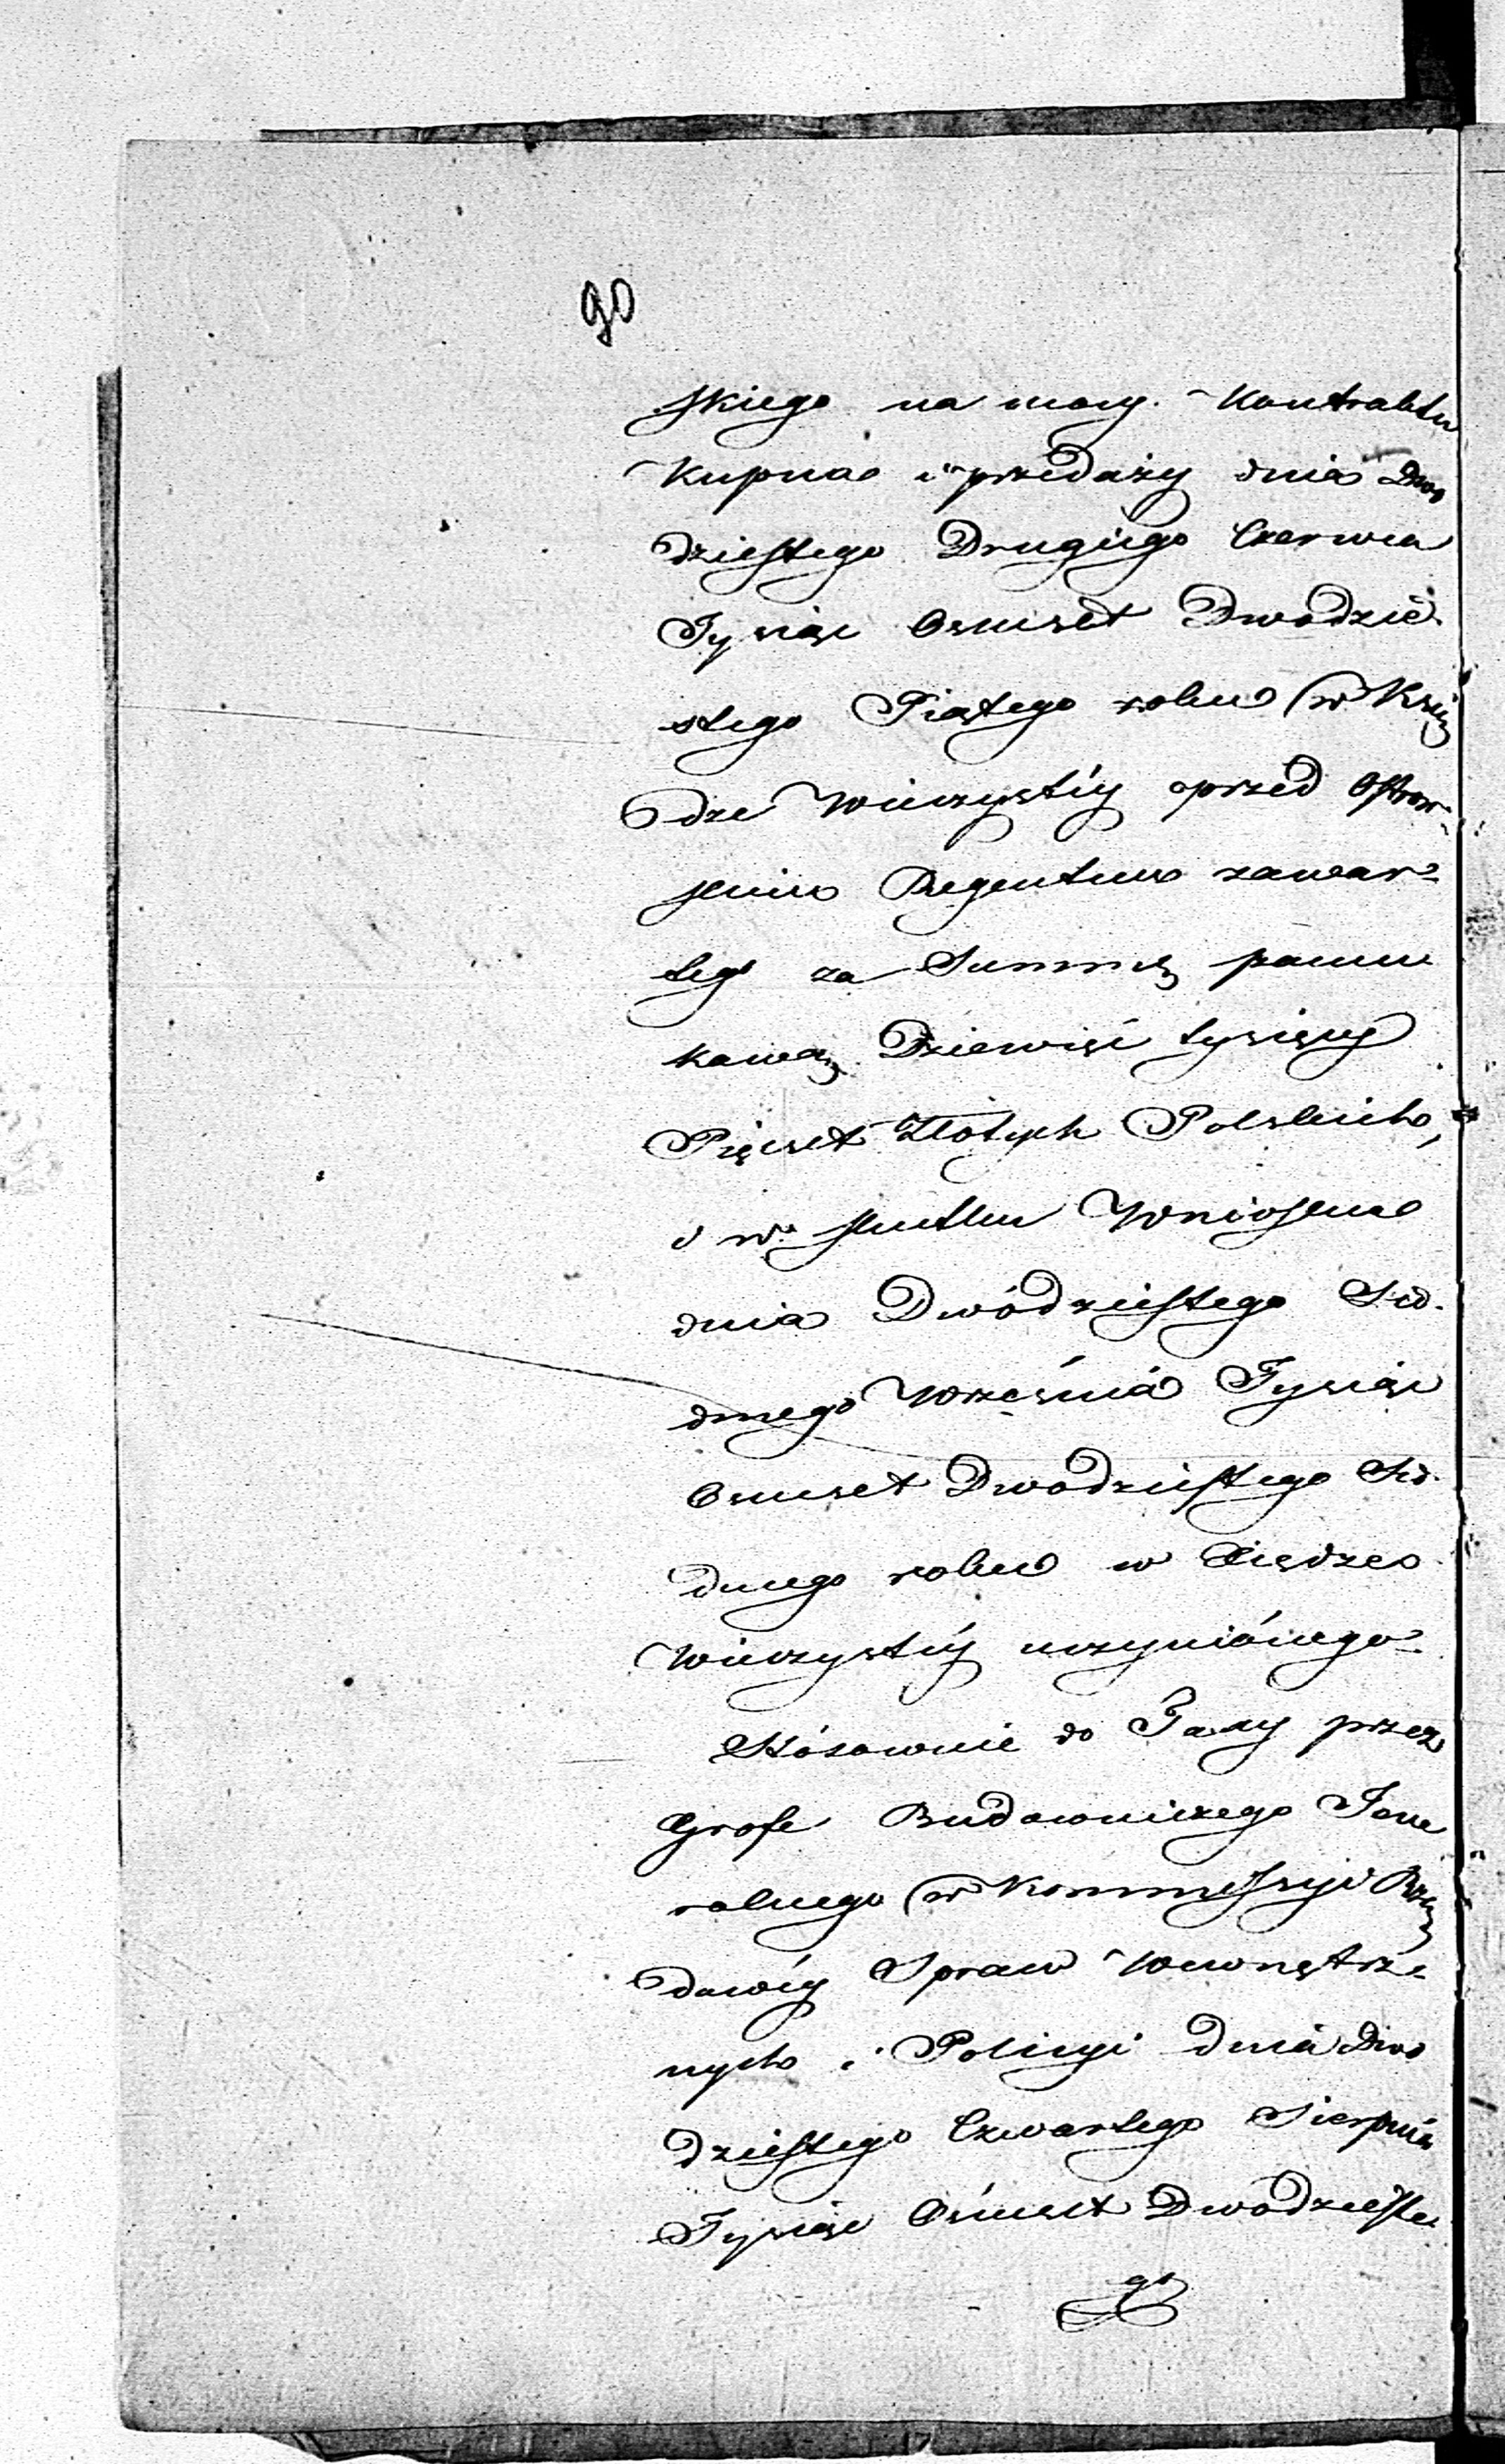 90
skiego na mocy Kontraktu
Kupna i przedaży dnia Dwu
dziestego Drugiego Czerwca
Tysiąc Osmset Dwudzie
stego Piątego roku w Księ
dze Wieczystéy przed
Regentem zawar=
tego za Summę szacun
kową Dziewięć tysięcy
Pięćset Złotych Polskich,
i w skutku Wniosku
dnia Dwódziestego Siód.
dmego Września Tysiąc
Osmset Dwodziestego Siód.
dmego roku w Xiędze
Wieczystéy uczynionego=
Stósownie do Taxy przez
Grofe Budowniczego Jene
ralnego w Kommissyi Rzą
dowéy Spraw Wewnętrz=
nych i Policyi dnia Dwo
dziestego Czwartego Sierpnia
Tysiąc Ośmset Dwódzieste
go